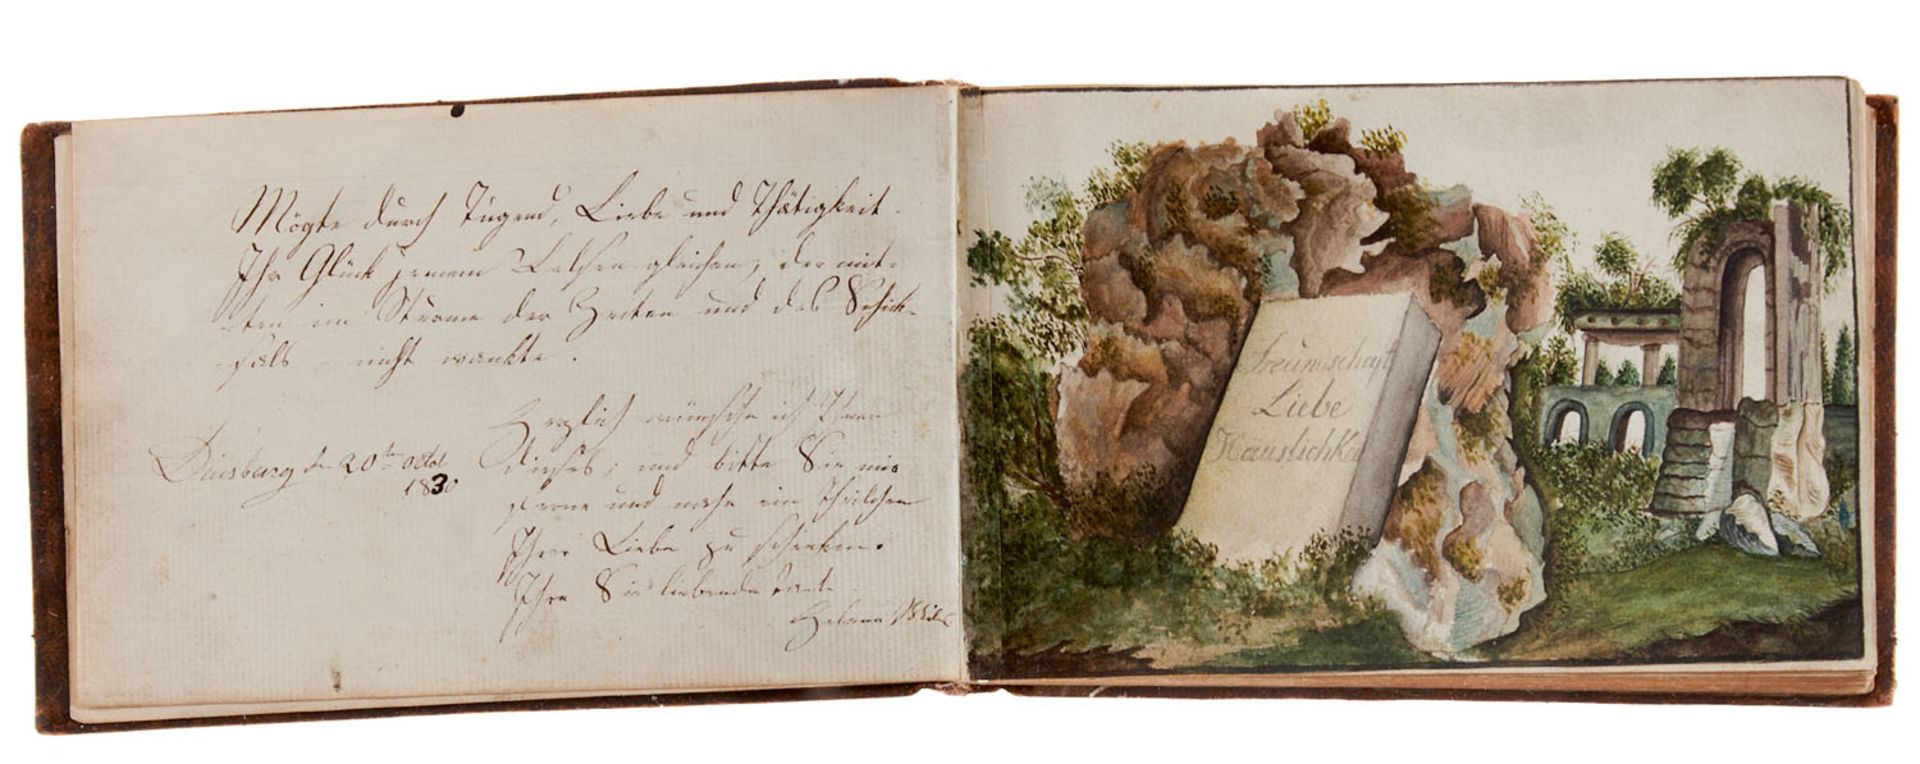 Mögte durch Tugend, Liebe und Thätigkeit
Ihr Glück jenem Felsen gleichen, der mit-
-ten im Sturme der Zeiten und des Schick-
-sals - nicht wankte.
Herzlich wünsche ich Ihnen
dieses; und bitte Sie mir
ferne und nahe ein Theilchen
Ihrer Liebe zu schenken.
Ihre Sie liebende Tante
Helena
Duisburg den 20ten Octob
1830
Freundschaft
Liebe
Häuslichkeit